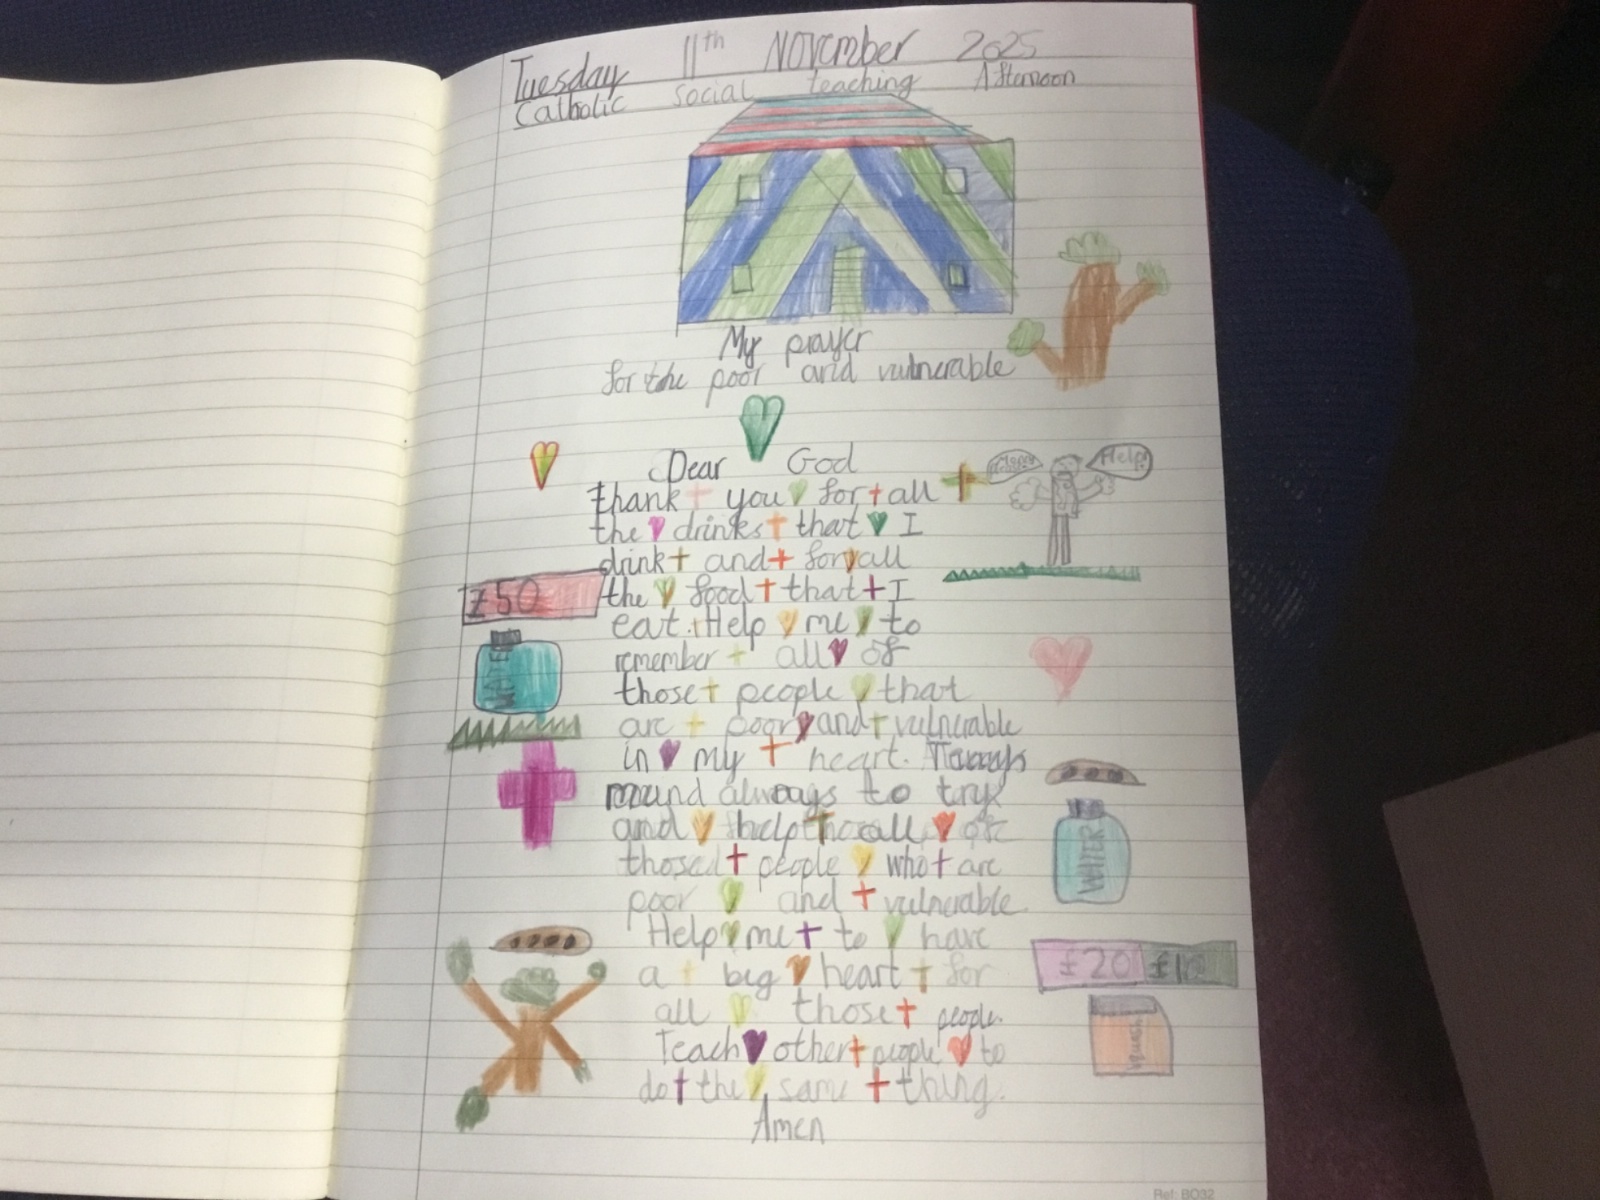 Tuesday 11th November 2025
Catholic social teaching Afternoon
My prayer
for the poor and vulnerable
Dear God
Help
thank you for all
the drinks that I
drink and for all
£50
the food that I
eat. Help me to
remember all of
WATER
those people that
are poor and vulnerable
in my heart.
mund always to try
and help all of
those people who are
WATER
poor and vulnerable
Help me to have
a big heart for
£20 £10
all those people.
Teach other people to
do the same thing.
Amen
Ref: BO32